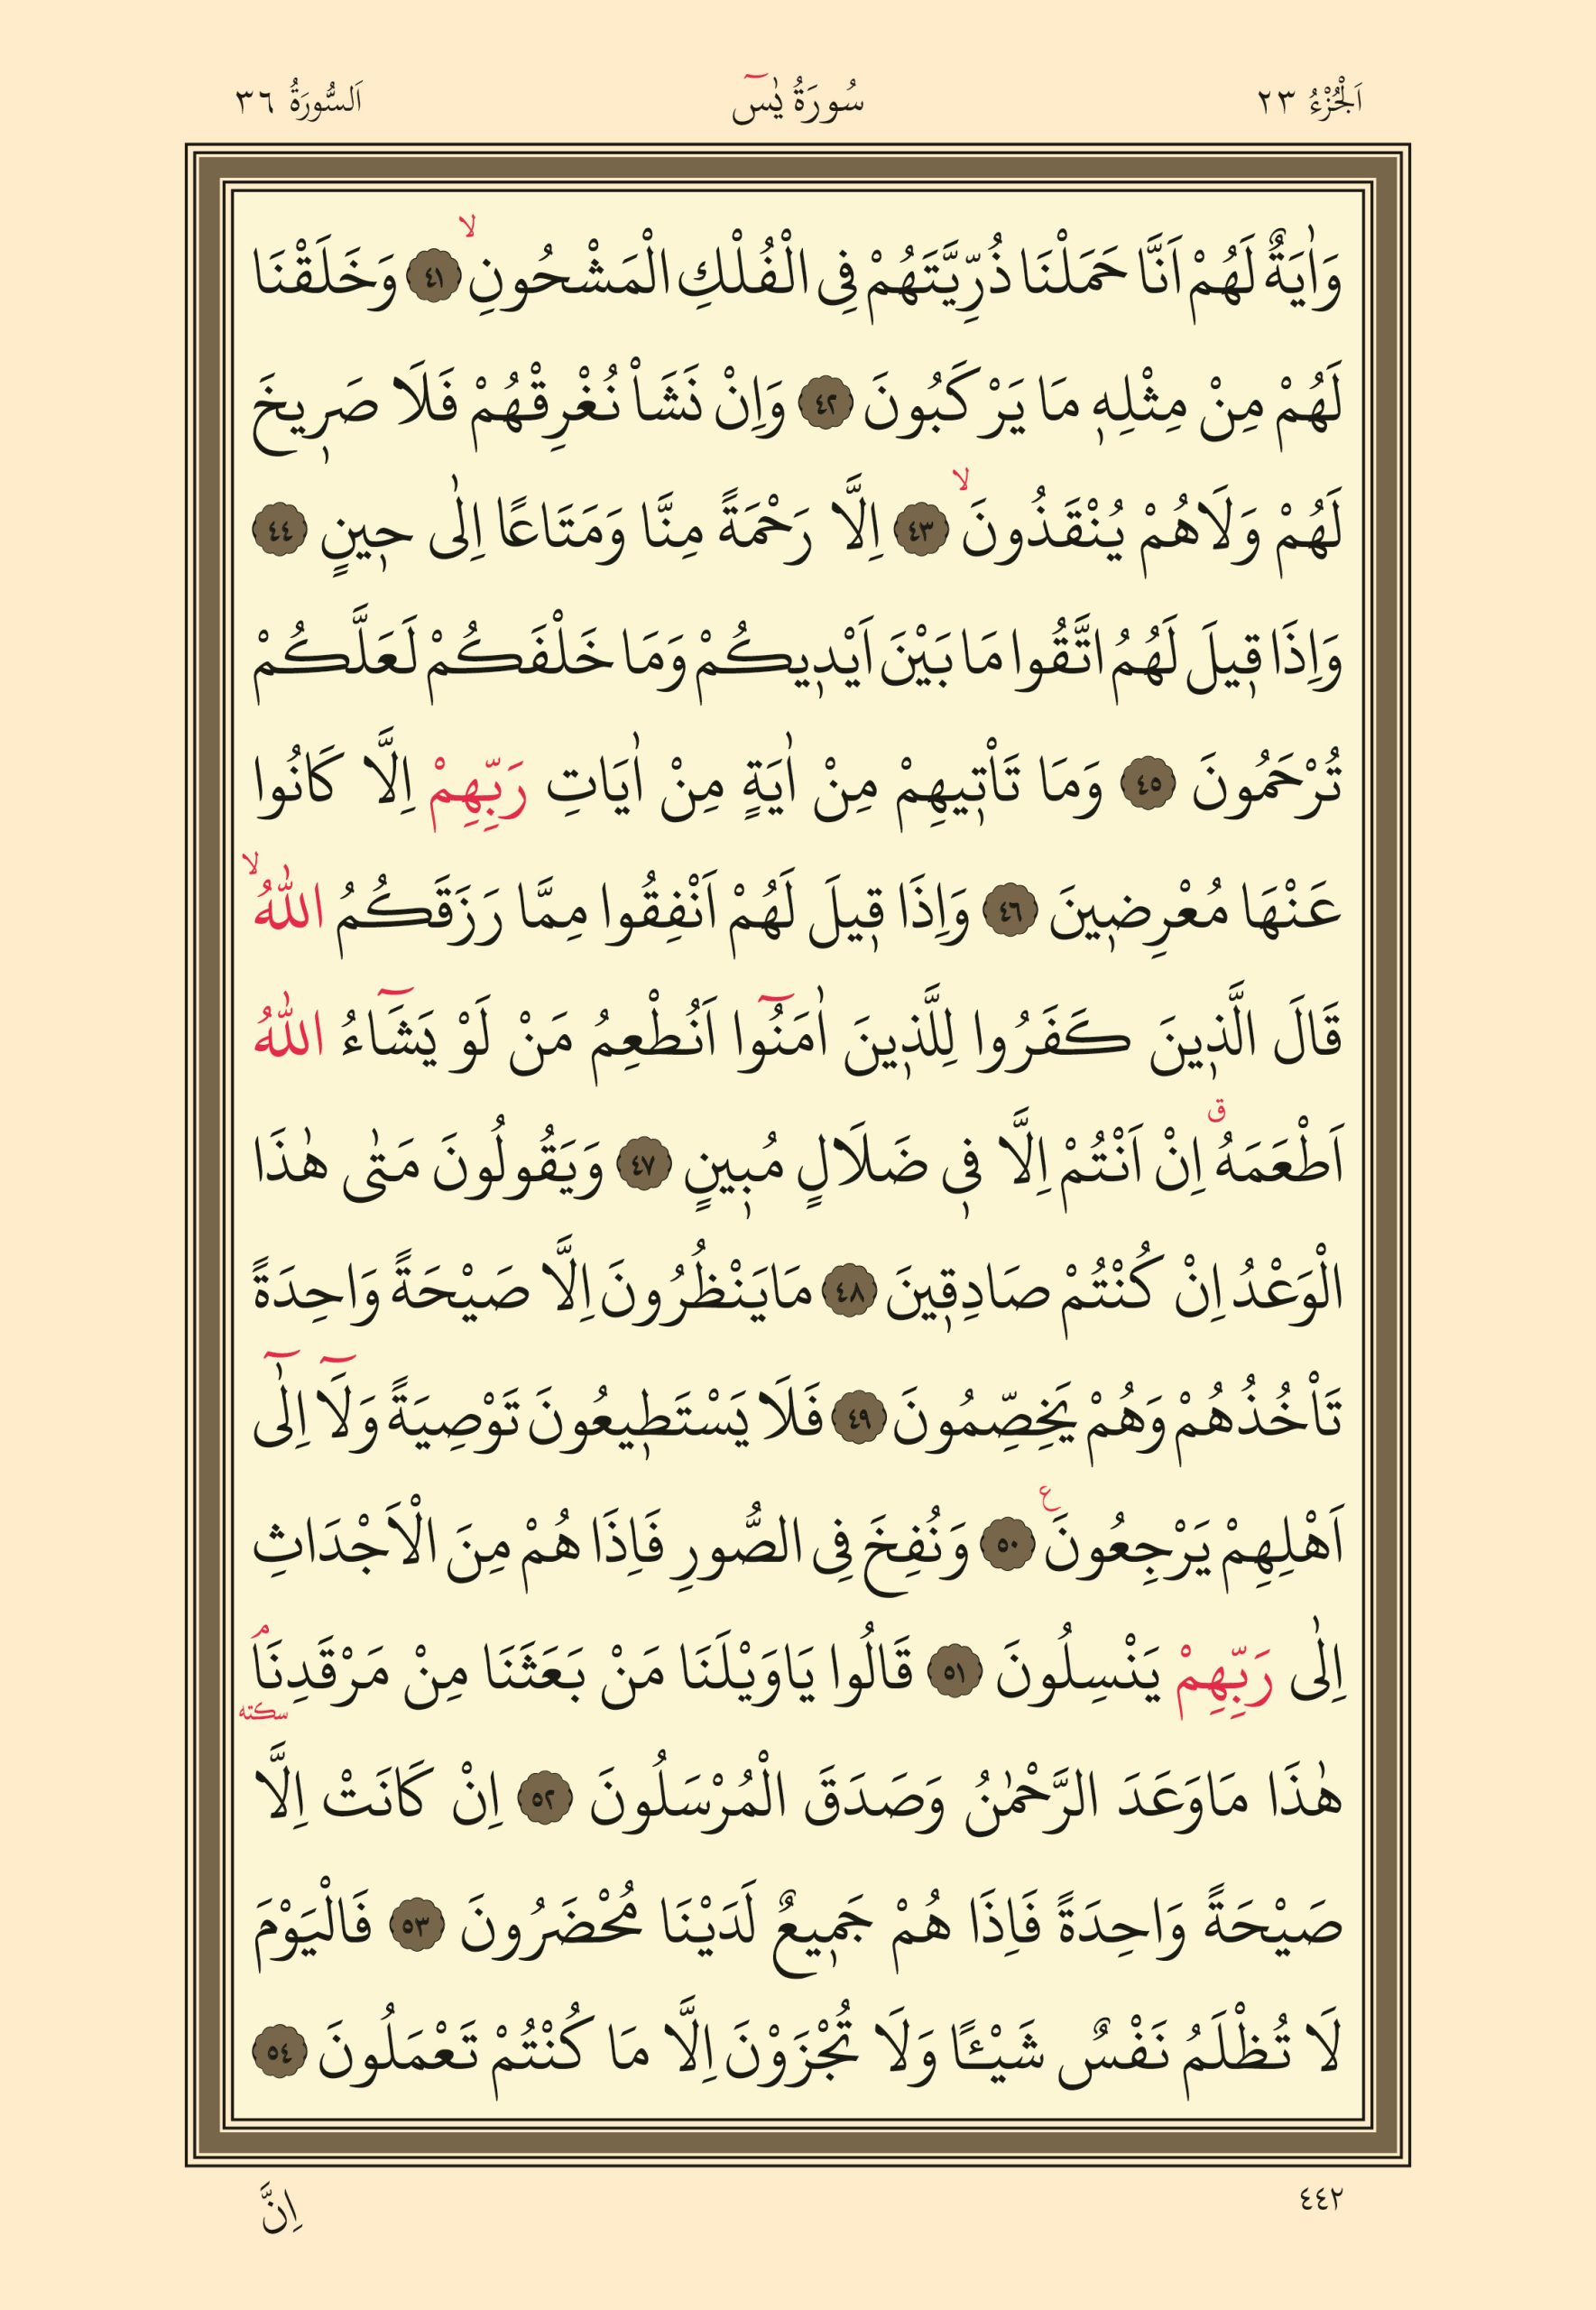 اَلْجُزْءُ ٢٣
سُورَةُ يٰسٓ
اَلسُّورَةُ ٣٦
وَاٰيَةٌ لَهُمْ اَنَّا حَمَلْنَا ذُرِّيَّتَهُمْ فِى الْفُلْكِ الْمَشْحُونِۙ ٤١ وَخَلَقْنَا
لَهُمْ مِنْ مِثْلِهٖ مَا يَرْكَبُونَ ٤٢ وَاِنْ نَشَاْ نُغْرِقْهُمْ فَلَا صَرٖيخَ
لَهُمْ وَلَاهُمْ يُنْقَذُونَۙ ٤٣ اِلَّا رَحْمَةً مِنَّا وَمَتَاعًا اِلٰى حٖينٍ ٤٤
وَاِذَا قٖيلَ لَهُمُ اتَّقُوا مَا بَيْنَ اَيْدٖيكُمْ وَمَا خَلْفَكُمْ لَعَلَّكُمْ
تُرْحَمُونَ ٤٥ وَمَا تَاْتٖيهِمْ مِنْ اٰيَةٍ مِنْ اٰيَاتِ رَبِّهِمْ اِلَّا كَانُوا
عَنْهَا مُعْرِضٖينَ ٤٦ وَاِذَا قٖيلَ لَهُمْ اَنْفِقُوا مِمَّا رَزَقَكُمُ اللّٰهُۙ
قَالَ الَّذٖينَ كَفَرُوا لِلَّذٖينَ اٰمَنُٓوا اَنُطْعِمُ مَنْ لَوْ يَشَٓاءُ اللّٰهُ
اَطْعَمَهُࣗ اِنْ اَنْتُمْ اِلَّا فٖى ضَلَالٍ مُبٖينٍ ٤٧ وَيَقُولُونَ مَتٰى هٰذَا
الْوَعْدُ اِنْ كُنْتُمْ صَادِقٖينَ ٤٨ مَايَنْظُرُونَ اِلَّا صَيْحَةً وَاحِدَةً
تَاْخُذُهُمْ وَهُمْ يَخِصِّمُونَ ٤٩ فَلَا يَسْتَطٖيعُونَ تَوْصِيَةً وَلَٓا اِلٰٓى
اَهْلِهِمْ يَرْجِعُونَ ع ٥٠ وَنُفِخَ فِى الصُّورِ فَاِذَا هُمْ مِنَ الْاَجْدَاثِ
اِلٰى رَبِّهِمْ يَنْسِلُونَ ٥١ قَالُوا يَاوَيْلَنَا مَنْ بَعَثَنَا مِنْ مَرْقَدِنَاۢ سكته
هٰذَا مَاوَعَدَ الرَّحْمٰنُ وَصَدَقَ الْمُرْسَلُونَ ٥٢ اِنْ كَانَتْ اِلَّا
صَيْحَةً وَاحِدَةً فَاِذَا هُمْ جَمٖيعٌ لَدَيْنَا مُحْضَرُونَ ٥٣ فَالْيَوْمَ
لَا تُظْلَمُ نَفْسٌ شَيْـًٔا وَلَا تُجْزَوْنَ اِلَّا مَا كُنْتُمْ تَعْمَلُونَ ٥٤
٤٤٢
اِنَّ